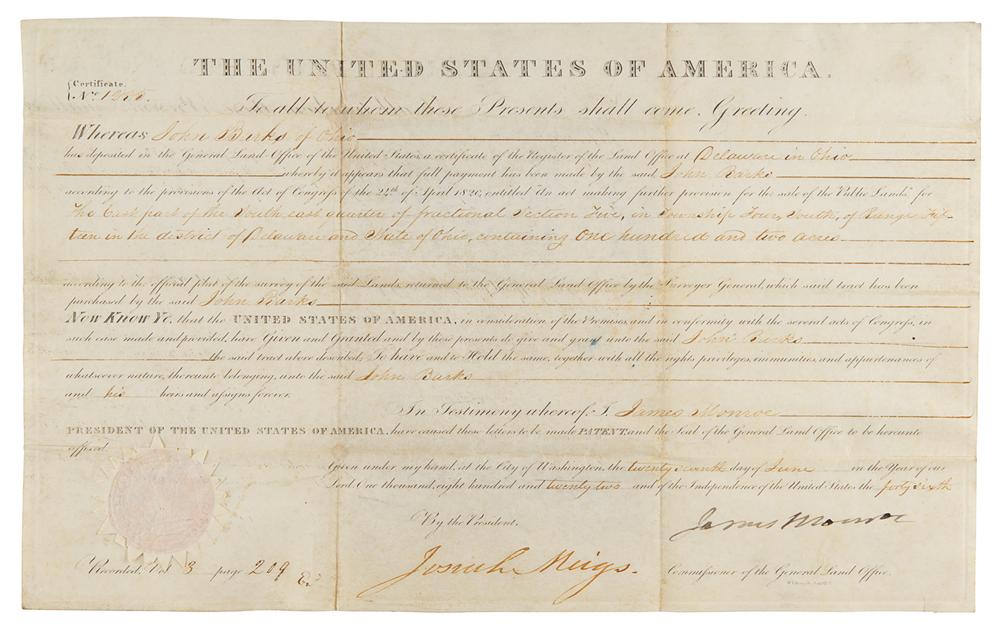 THE UNITED STATES OF AMERICA.
Certificate.
No.
To all to whom these Presents shall come, Greeting.
Whereas John Barks of Ohio
has deposited in the General Land Office of the United States, a certificate of the Register of the Land Office at Delaware in Ohio
whereby it appears that full payment has been made by the said John Barks
according to the provisions of the Act of Congress of the 24th of April 1820, entitled "An act making further provision for the sale of the Public Lands," for
The East part of the South east quarter of fractional Section Five, in Township Four, South, of Range Fif-
teen in the district of Delaware and State of Ohio, containing One hundred and two acres
according to the official plat of the survey of the said Lands, returned to the General Land Office by the Surveyor General, which said tract has been
purchased by the said John Barks
Now Know Ye, that the UNITED STATES OF AMERICA, in consideration of the Premises, and in conformity with the several acts of Congress, in
such case made and provided, have Given and Granted and by these presents do give and grant unto the said John Barks
the said tract above described; To have and to Hold the same, together with all the rights, privileges, immunities, and appurtenances of
whatsoever nature, thereunto belonging, unto the said John Barks
and his heirs and assigns forever.
In Testimony whereof, I, James Monroe
PRESIDENT OF THE UNITED STATES OF AMERICA, have caused these letters to be made PATENT, and the Seal of the General Land Office to be hereunto
affixed.
Given under my hand, at the City of Washington, the twenty seventh day of June in the Year of our
Lord One thousand, eight hundred and twenty two and of the Independence of the United States the forty sixth
By the President.
James Monroe
Josiah Meigs.
Commissioner of the General Land Office.
Recorded, Vol 3 page 209